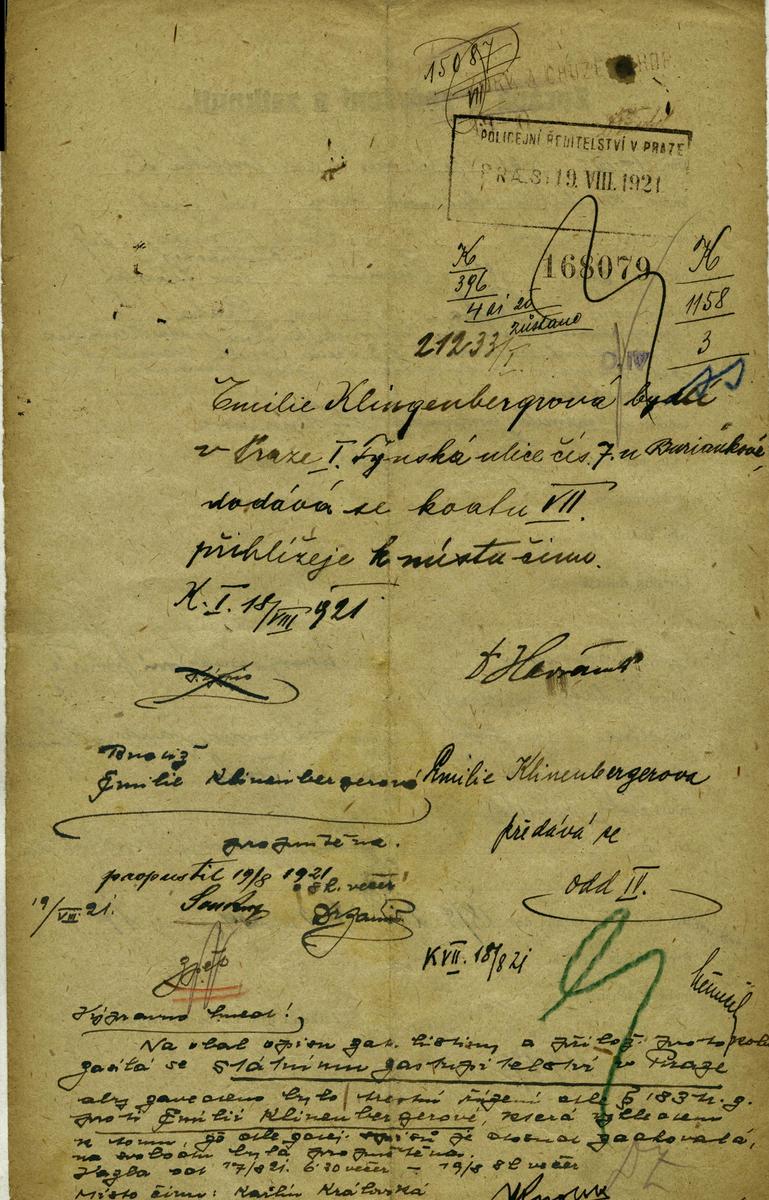 15087
VII
POLICEJNÍ ŘEDITELSTVÍ V PRAZE
PRÆS: 19. VIII. 1921
K
396
4 ai 20
zůstano
168079
K
1158
3
21233/I
Emilie Klingenbergrová bydlí
v Praze I. Týnská ulice čís. 7. u Buriánkové,
dodává se koatu VII.
přihlížeje k místu činu.
K. I. 18/VIII 1921
Emilie Klinenbergerová
propuštěna.
propustil 19/8 1921
8 h. večer
19/VIII. 21.
Emilie Klinenbergerova
předává se
odd IV.
K VII. 18/8 21
Výpravno hned!
Na obal opisu zat. listiny a přilož. protokolu
zasílá se státnímu zastupitelství v Praze
aby zavedeno bylo trestní řízení dle § 183 tr. z.
proti Emilii Klinenbergerové, která vzhledem
k tomu, že dle zdej. spisů je dosud zachovalá,
na svobodu byla propuštěna.
Vazba od 17/8 21. 6 30 večer – 19/8 8 h večer
Místo činu: Karlín Královská